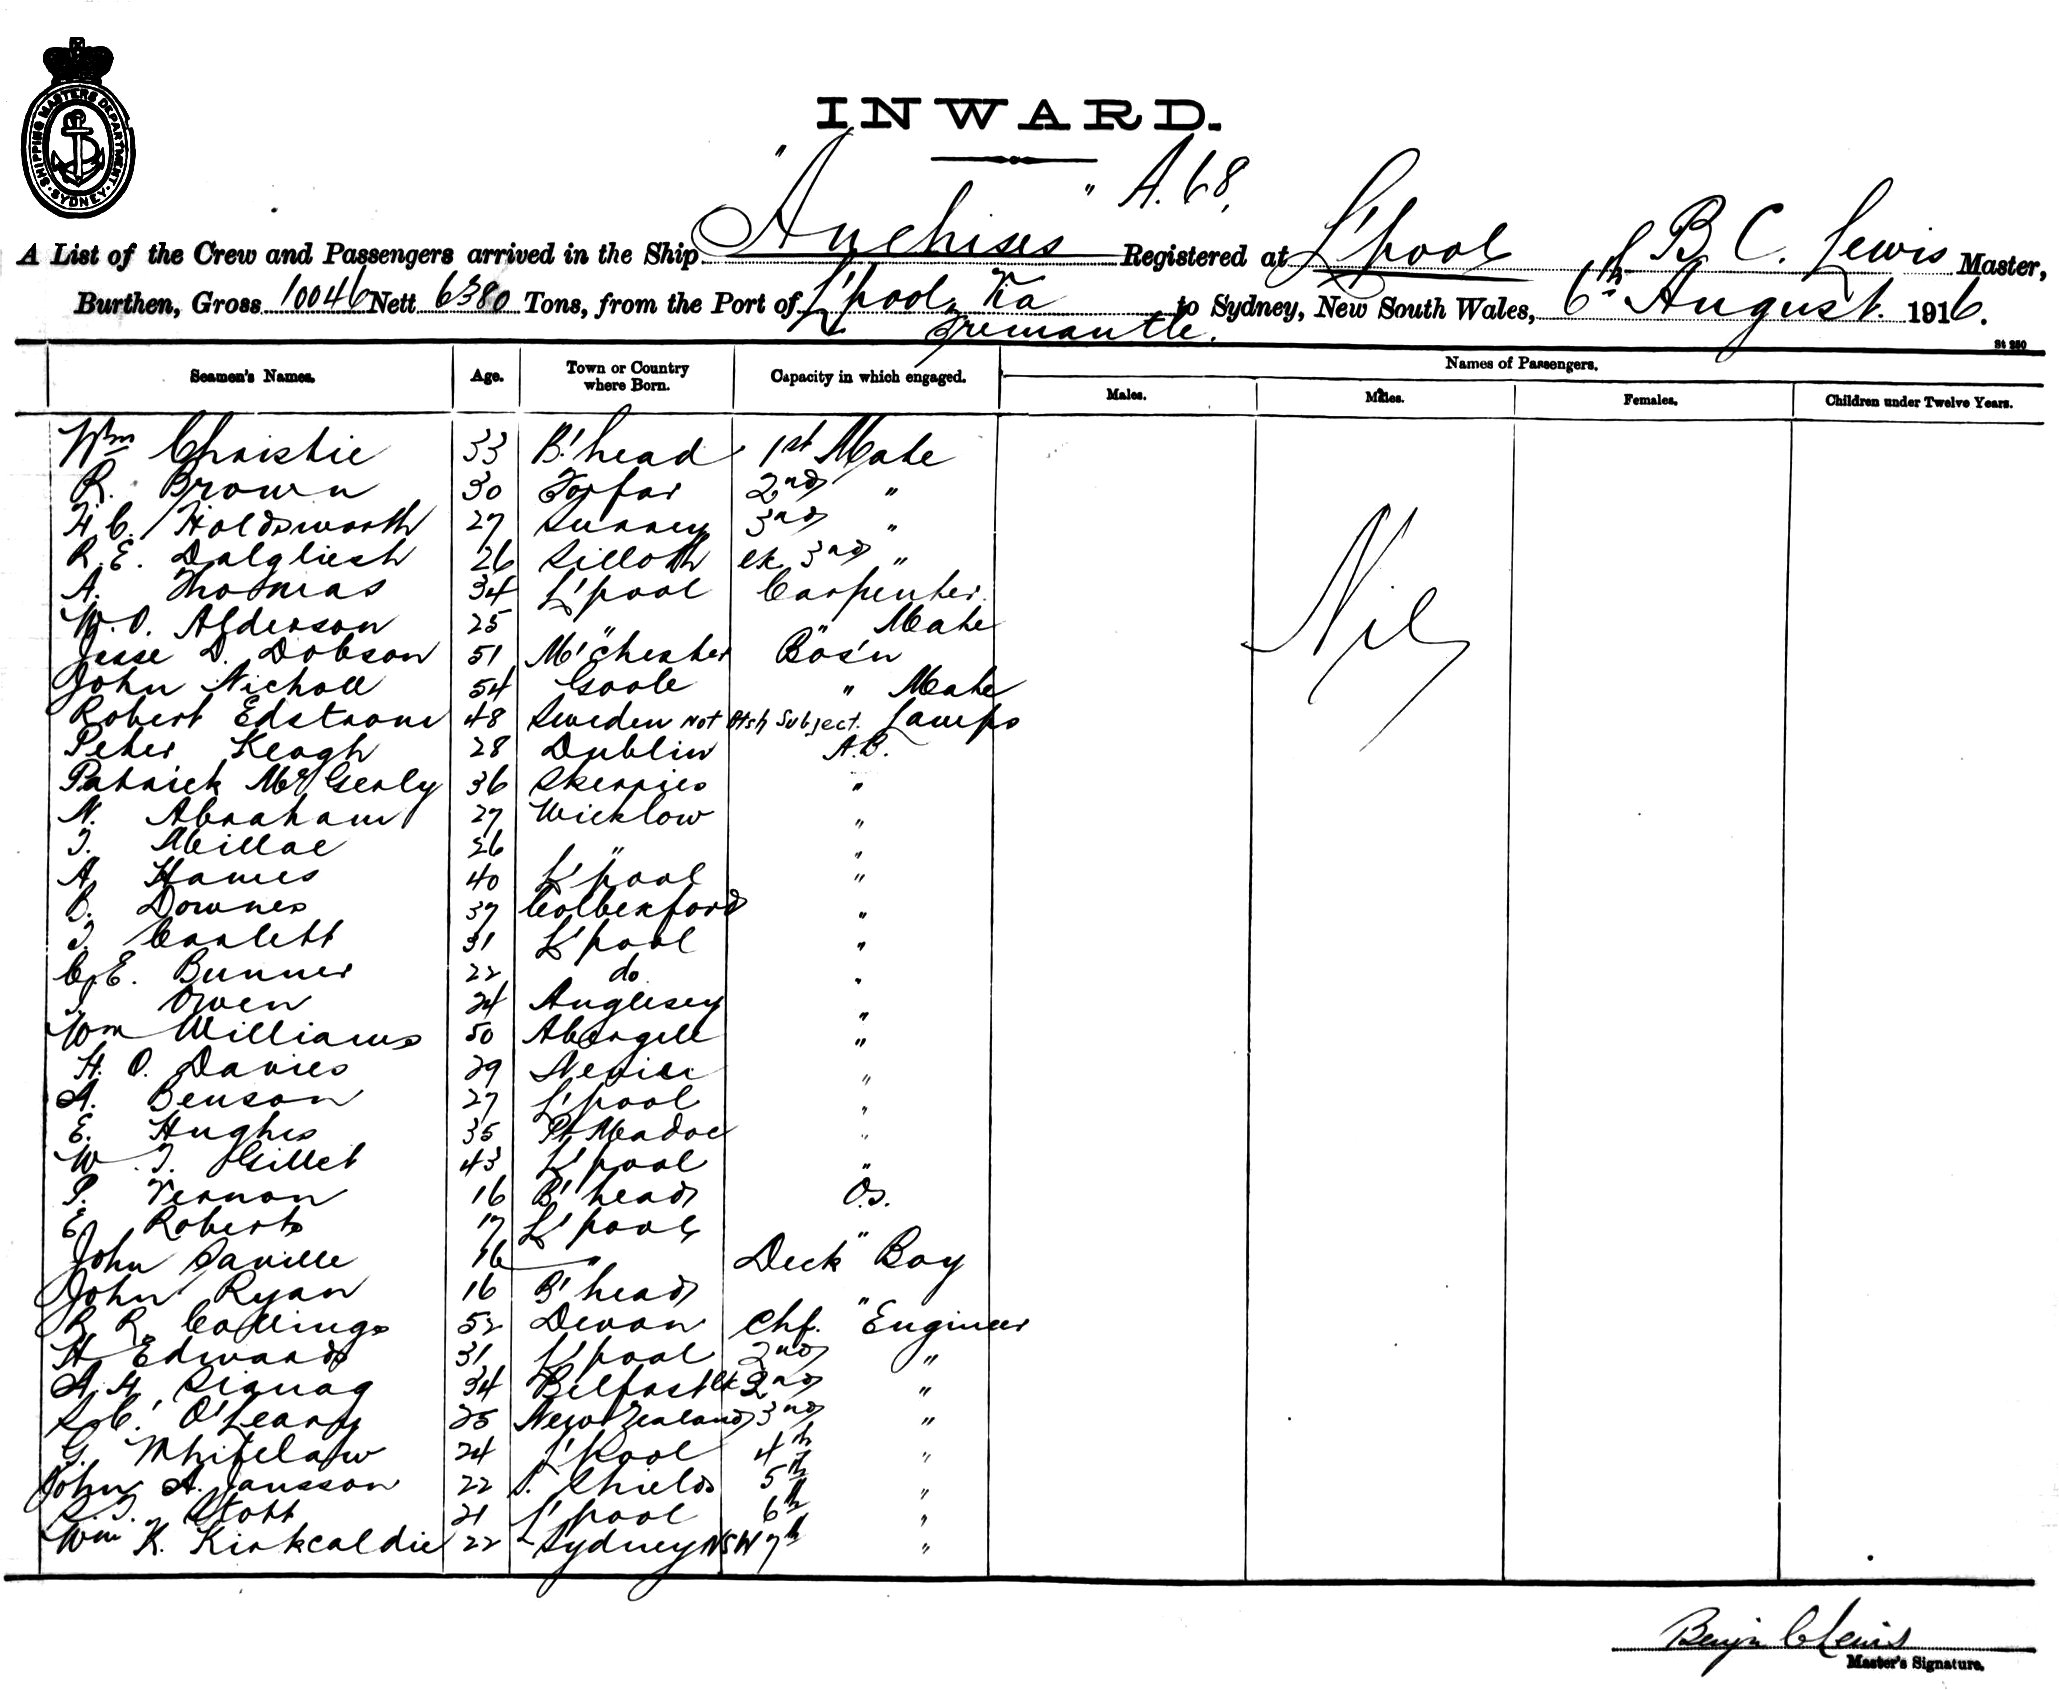 SHIPPING MASTERS DEPARTMENT · SYDNEY ·
INWARD.
"Anchises" A.68,
A List of the Crew and Passengers arrived in the Ship Anchises Registered at L'pool B C. Lewis Master,
Burthen, Gross 10046 Nett 6380 Tons, from the Port of L'pool, via Fremantle. to Sydney, New South Wales, 6th August. 1916.
St 250
Seamen's Names. Age. Town or Country where Born. Capacity in which engaged. Names of Passengers.
Males. Males. Females. Children under Twelve Years.
Wm Christie 33 B'head 1st Mate
R. Brown 30 Forfar 2nd "
H.C. Holdsworth 27 Surrey 3rd "
R.E. Dalgliesh 26 Silloth ex 3rd "
A. Thomas 34 L'pool Carpenter.
W.O. Alderson 25 " " Mate
Jesse D. Dobson 51 M'chester Bos'n
John Nicholl 54 Goole " Mate
Robert Edstrom 48 Sweden Not Btsh Subject. Lamps
Peter Keogh 28 Dublin A.B.
Patrick McGerly 36 Skerries "
N. Abraham 27 Wicklow "
J. Millar 26 " "
A. Hames 40 L'pool "
B. Downes 37 "
J. Corlett 31 L'pool "
C.E. Bunner 22 do "
J. Owen 24 Anglesey "
Wm Williams 50 Abergele "
H. O. Davies 29 Nevin "
A. Benson 27 L'pool "
E. Hughes 35 Pt Madoc "
W. J. Gillet 43 L'pool "
P. Vernon 16 B'head O.S.
E. Roberts 17 L'pool "
John Saville 16 " Deck Boy
John Ryan 16 B'head "
R R. Collings 52 Devon Chf. Engineer
H Edwards 31 L'pool 2nd "
A.H. 34 Belfast ex 2nd "
S.C. O'Leary 25 New Zealand 3rd "
G. Whitelaw 24 L'pool 4th "
John A. Jansson 22 S. Shields 5th "
S.J. Stott 21 L'pool 6th "
Wm K. Kirkcaldie 22 Sydney NSW 7th "
Nil
Benjn C Lewis
Master's Signature.